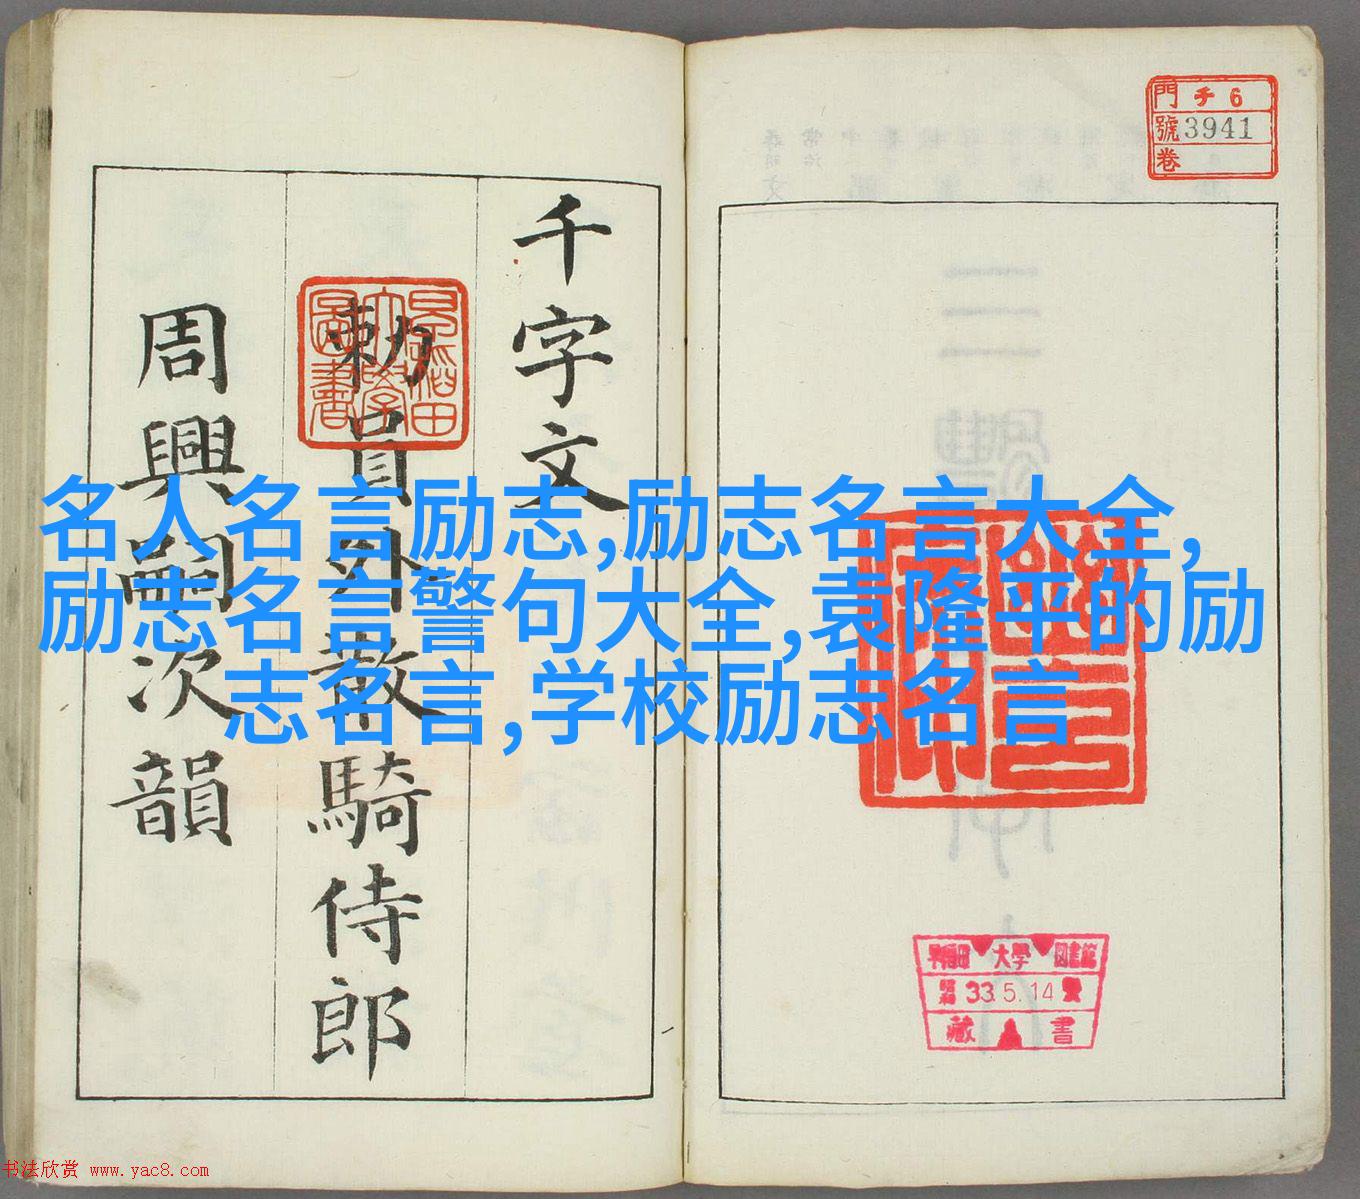 門 チ 6
號 3941
卷
千字文
勅員外散騎侍郎
周興嗣次韻
早稲田大學圖書
名人名言励志,励志名言大全,
励志名言警句大全,袁隆平的励
志名言,学校励志名言
早稲田大學圖書館
昭和 33.5.14
藏書
书法欣赏 www.yac8.com